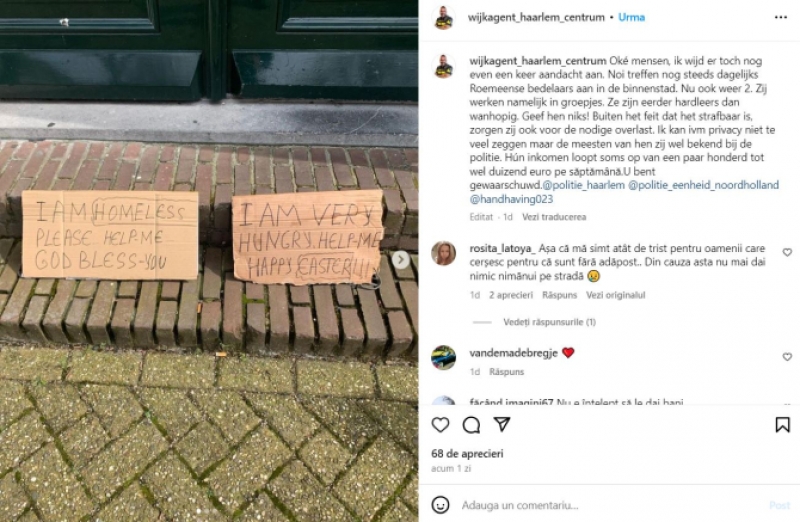 I AM HOMELESS
PLEASE HELP-ME
GOD BLESS-YOU
I AM VERY
HUNGRY. HELP-ME
HAPPY EASTER!!!
wijkagent_haarlem_centrum • Urma
wijkagent_haarlem_centrum Oké mensen, ik wijd er toch nog
even een keer aandacht aan. Noi treffen nog steeds dagelijks
Roemeense bedelaars aan in de binnenstad. Nu ook weer 2. Zij
werken namelijk in groepjes. Ze zijn eerder hardleers dan
wanhopig. Geef hen niks! Buiten het feit dat het strafbaar is,
zorgen zij ook voor de nodige overlast. Ik kan ivm privacy niet te
veel zeggen maar de meesten van hen zij wel bekend bij de
politie. Hún inkomen loopt soms op van een paar honderd tot
wel duizend euro pe săptămână.U bent
gewaarschuwd.@politie_haarlem @politie_eenheid_noordholland
@handhaving023
Editat · 1d Vezi traducerea
rosita_latoya_ Așa că mă simt atât de trist pentru oamenii care
cerșesc pentru că sunt fără adăpost.. Din cauza asta nu mai dai
nimic nimănui pe stradă 😢
1d 2 aprecieri Răspuns Vezi originalul
Vedeți răspunsurile (1)
vandemadebregje ❤️
1d Răspuns
făcând.imagini67 Nu e înțelept să le dai bani
68 de aprecieri
acum 1 zi
Adauga un comentariu...
Post